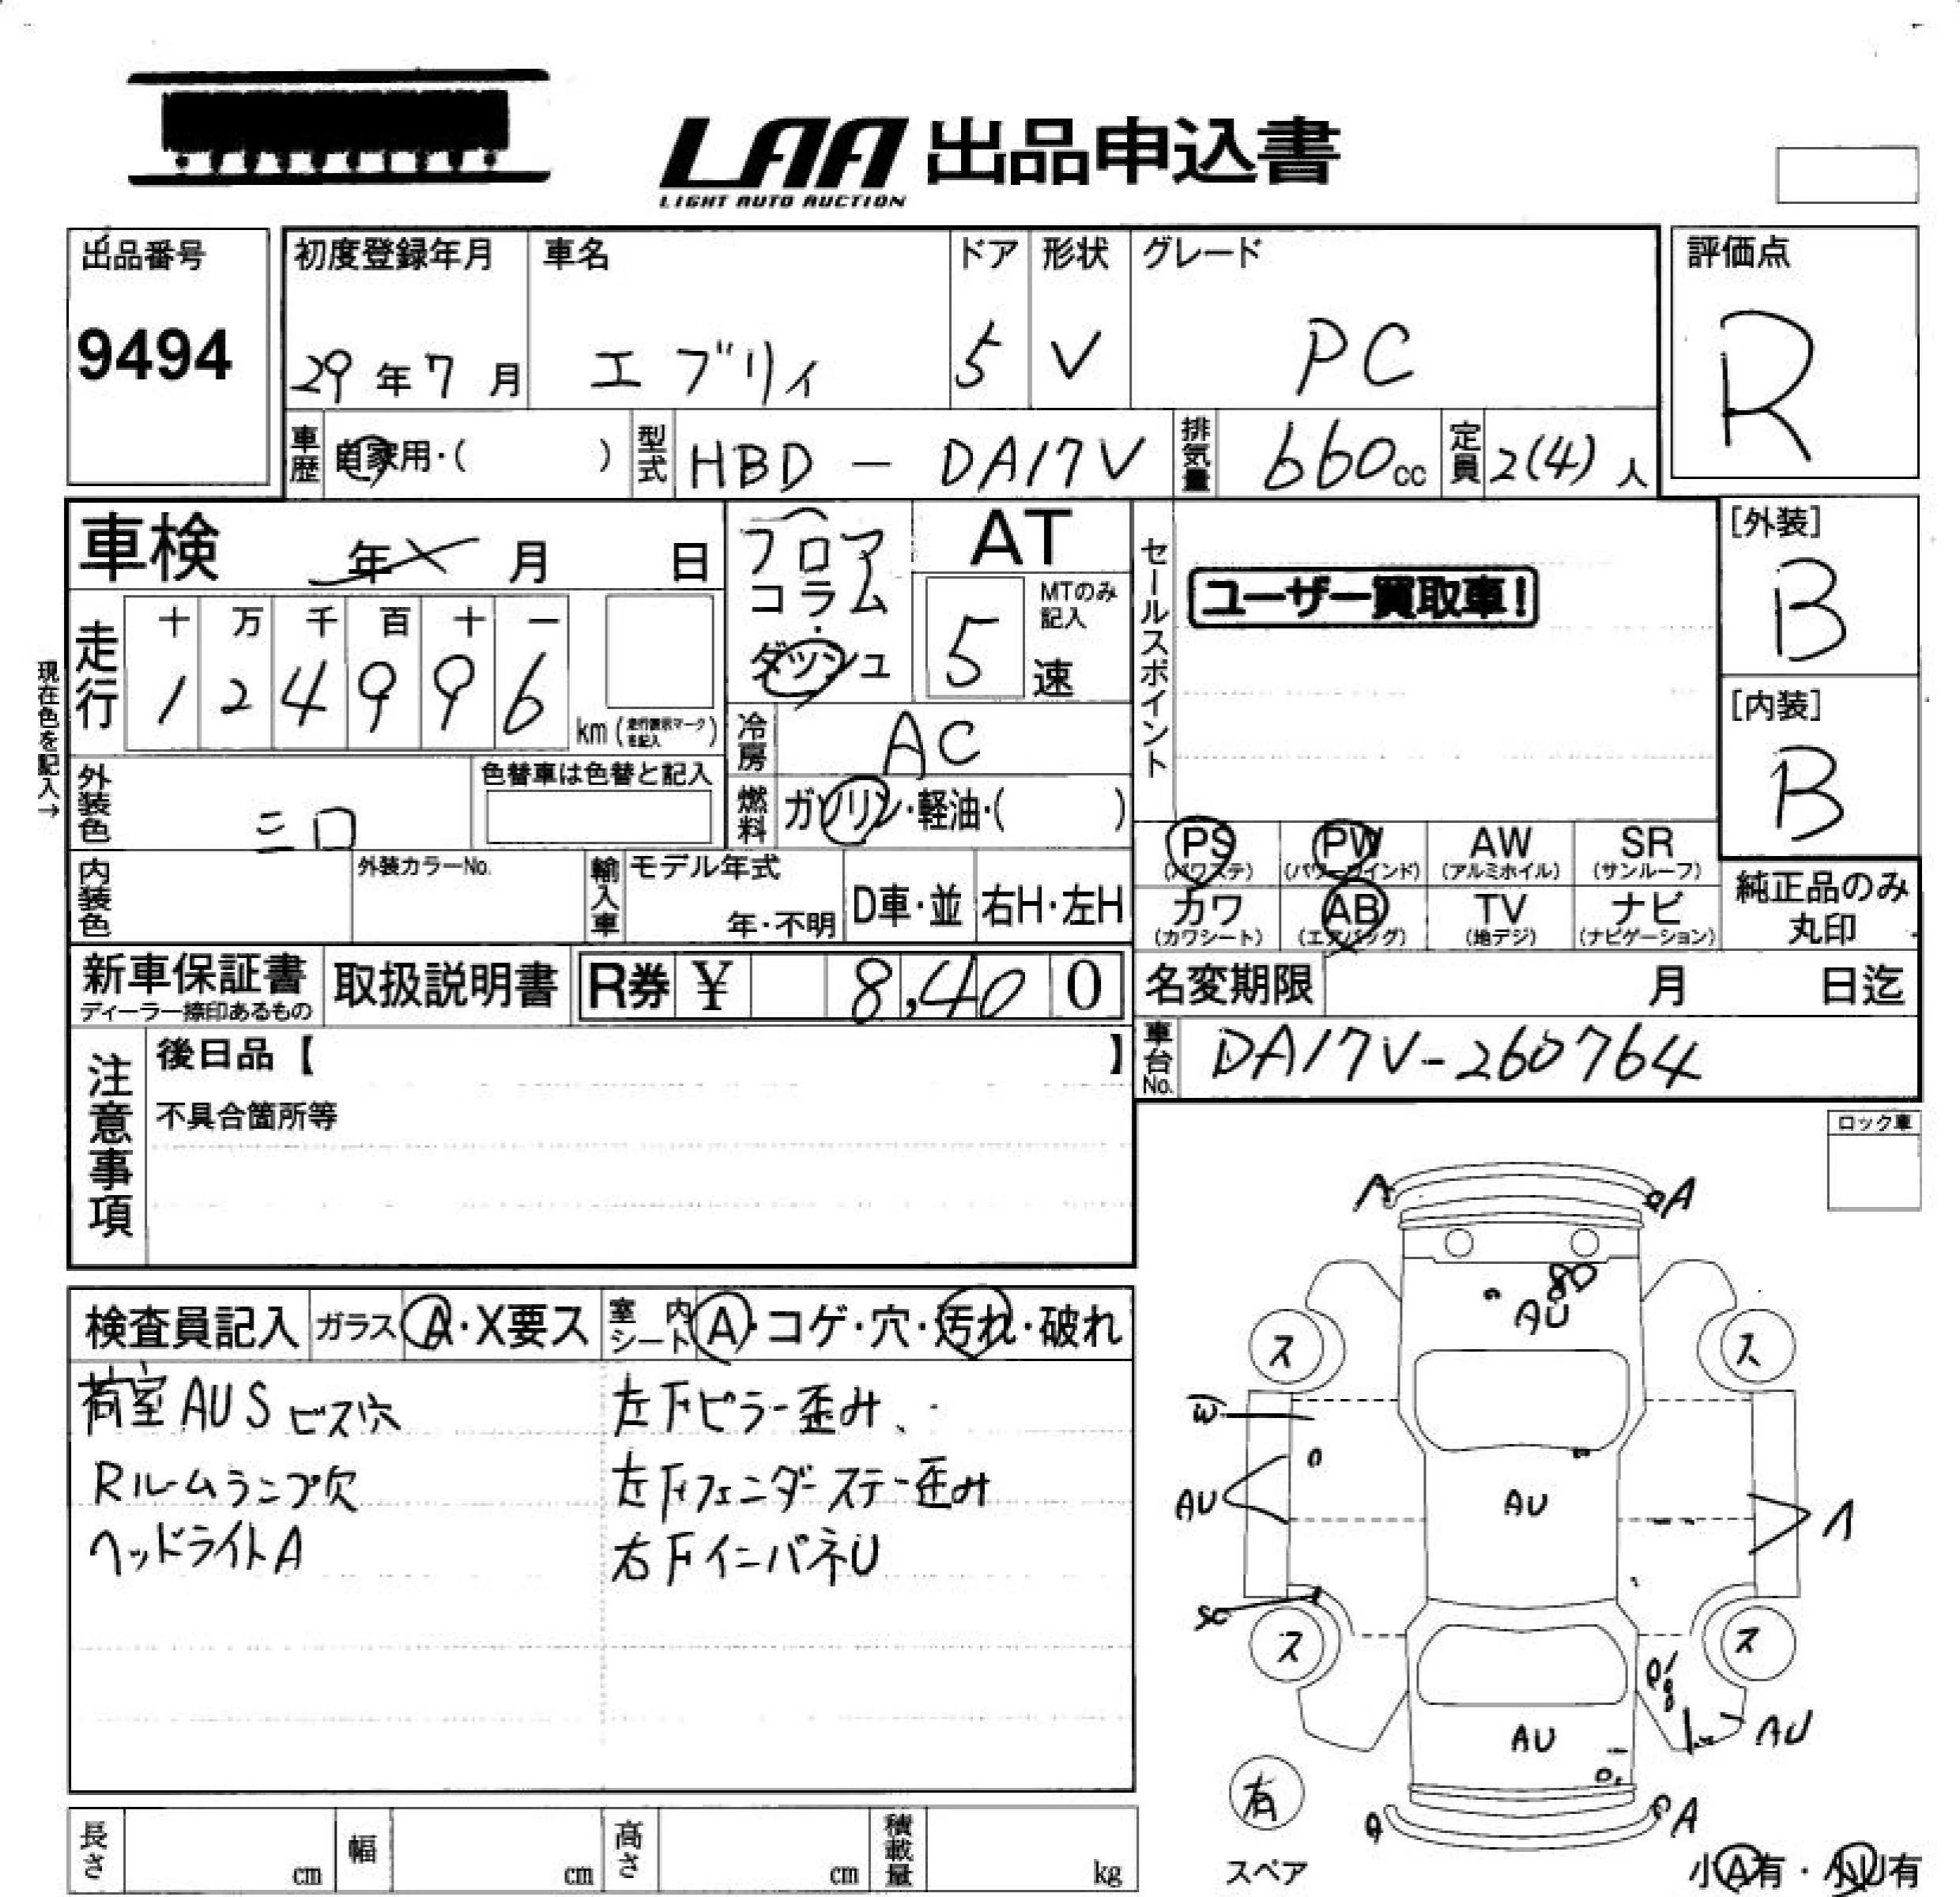 LAA 出品申込書
LIGHT AUTO AUCTION
出品番号
9494
初度登録年月
29年7月
車名
エブリィ
ドア
5
形状
V
グレード
PC
評価点
R
車歴
自家用・( )
型式
HBD - DA17V
排気量
660cc
定員
2(4)人
車検 年 月 日
フロア
コラム
・
ダッシュ
AT
5
MTのみ
記入
速
セールスポイント
ユーザー買取車!
[外装]
B
[内装]
B
現在色を記入→
走行
十 万 千 百 十 一
1 2 4 9 9 6
km (走行表示マークを記入)
冷房
AC
外装色
シロ
色替車は色替と記入
燃料
ガソリン・軽油・( )
PS PW AW SR
(パワステ) (パワーウインド) (アルミホイル) (サンルーフ)
カワ AB TV ナビ
(カワシート) (エアバッグ) (地デジ) (ナビゲーション)
純正品のみ
丸印
内装色
外装カラーNo.
輸入車
モデル年式
年・不明
D車・並
右H・左H
新車保証書
ディーラー捺印あるもの
取扱説明書
R券 ¥ 8,400
名変期限 月 日迄
注意事項
後日品【 】
不具合箇所等
車台No.
DA17V-260764
ロック車
検査員記入
ガラス A・X要ス
室内シート A・コゲ・穴・汚れ・破れ
荷室AUS ビス穴
Rルームランプ欠
ヘッドライトA
左Fピラー歪み、
左Fフェンダーステー歪み
右FインパネU
A
A
AU
ス
ス
W
AU
AU
A
ス
ス
AU
AU
有
スペア
A
A
小A有・小U有
長さ cm
幅 cm
高さ cm
積載量 kg